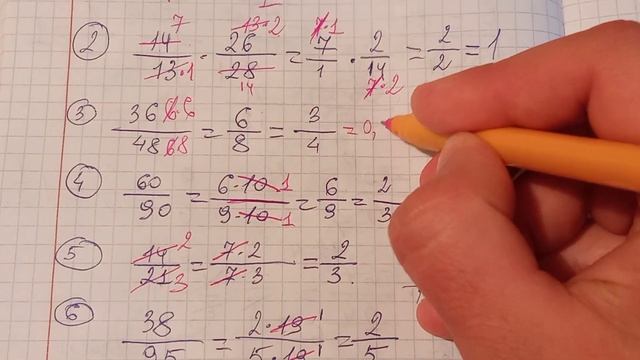 ② 14/13·1 · 26/28 = 7/1 · 2/14 = 2/2 = 1
7 13·2 14 7·1 7·2
③ 36 6·6/48 6·8 = 6/8 = 3/4 = 0,
④ 60/90 = 6·10 1/9·10 1 = 6/9 = 2/3
⑤ 14 2/21 3 = 7·2/7·3 = 2/3.
⑥ 38/95 = 2·19 1/5·19 1 = 2/5